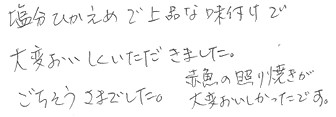 塩分ひかえめで上品な味付けで
大変おいしくいただきました。
ごちそうさまでした。
赤魚の照り焼きが
大変おいしかったです。